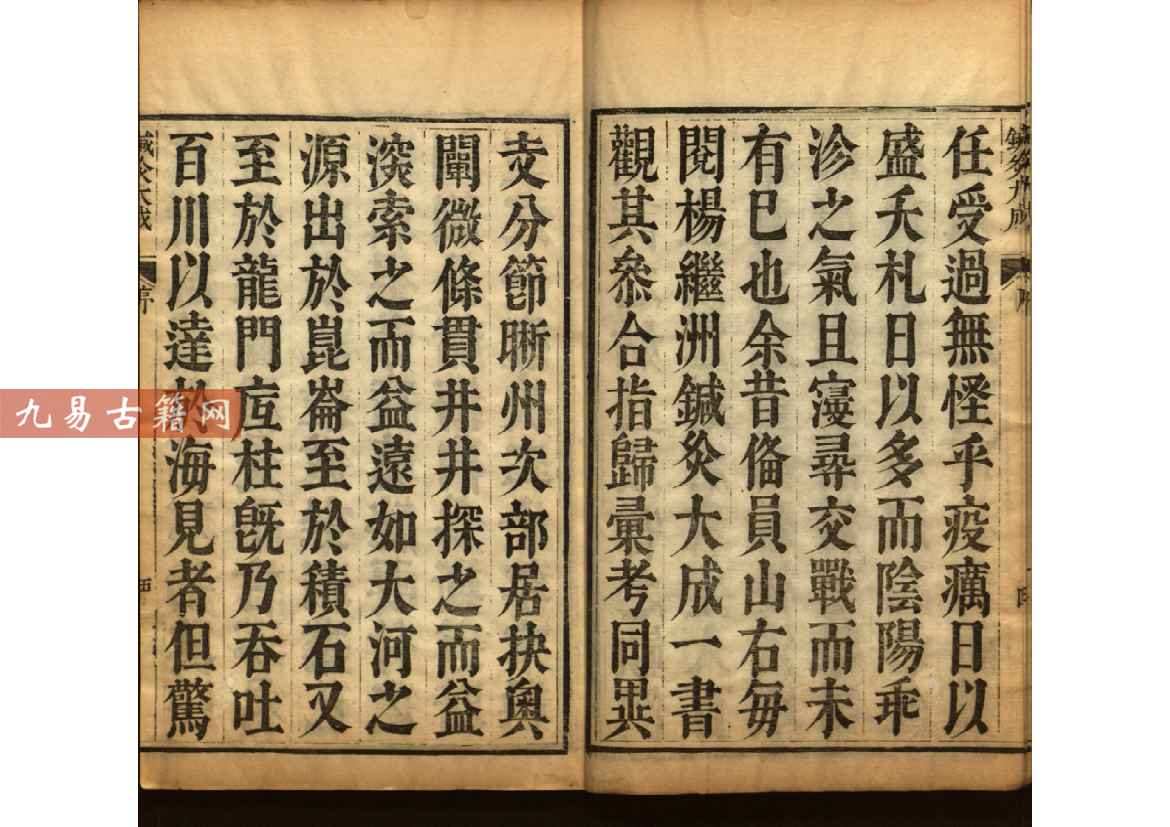 任受過無怪乎疫癘日以
盛夭札日以多而陰陽乖
沴之氣且寖尋交戰而未
有已也余昔備員山右每
閱楊繼洲鍼灸大成一書
觀其叅合指歸彙考同異
支分節晣州次部居抉奥
闡微條貫井井探之而益
深索之而益遠如大河之
源出於崑崙至於積石又
至於龍門底柱旣乃吞吐
百川以達於海見者但驚
鍼灸大成
序
九易古籍网